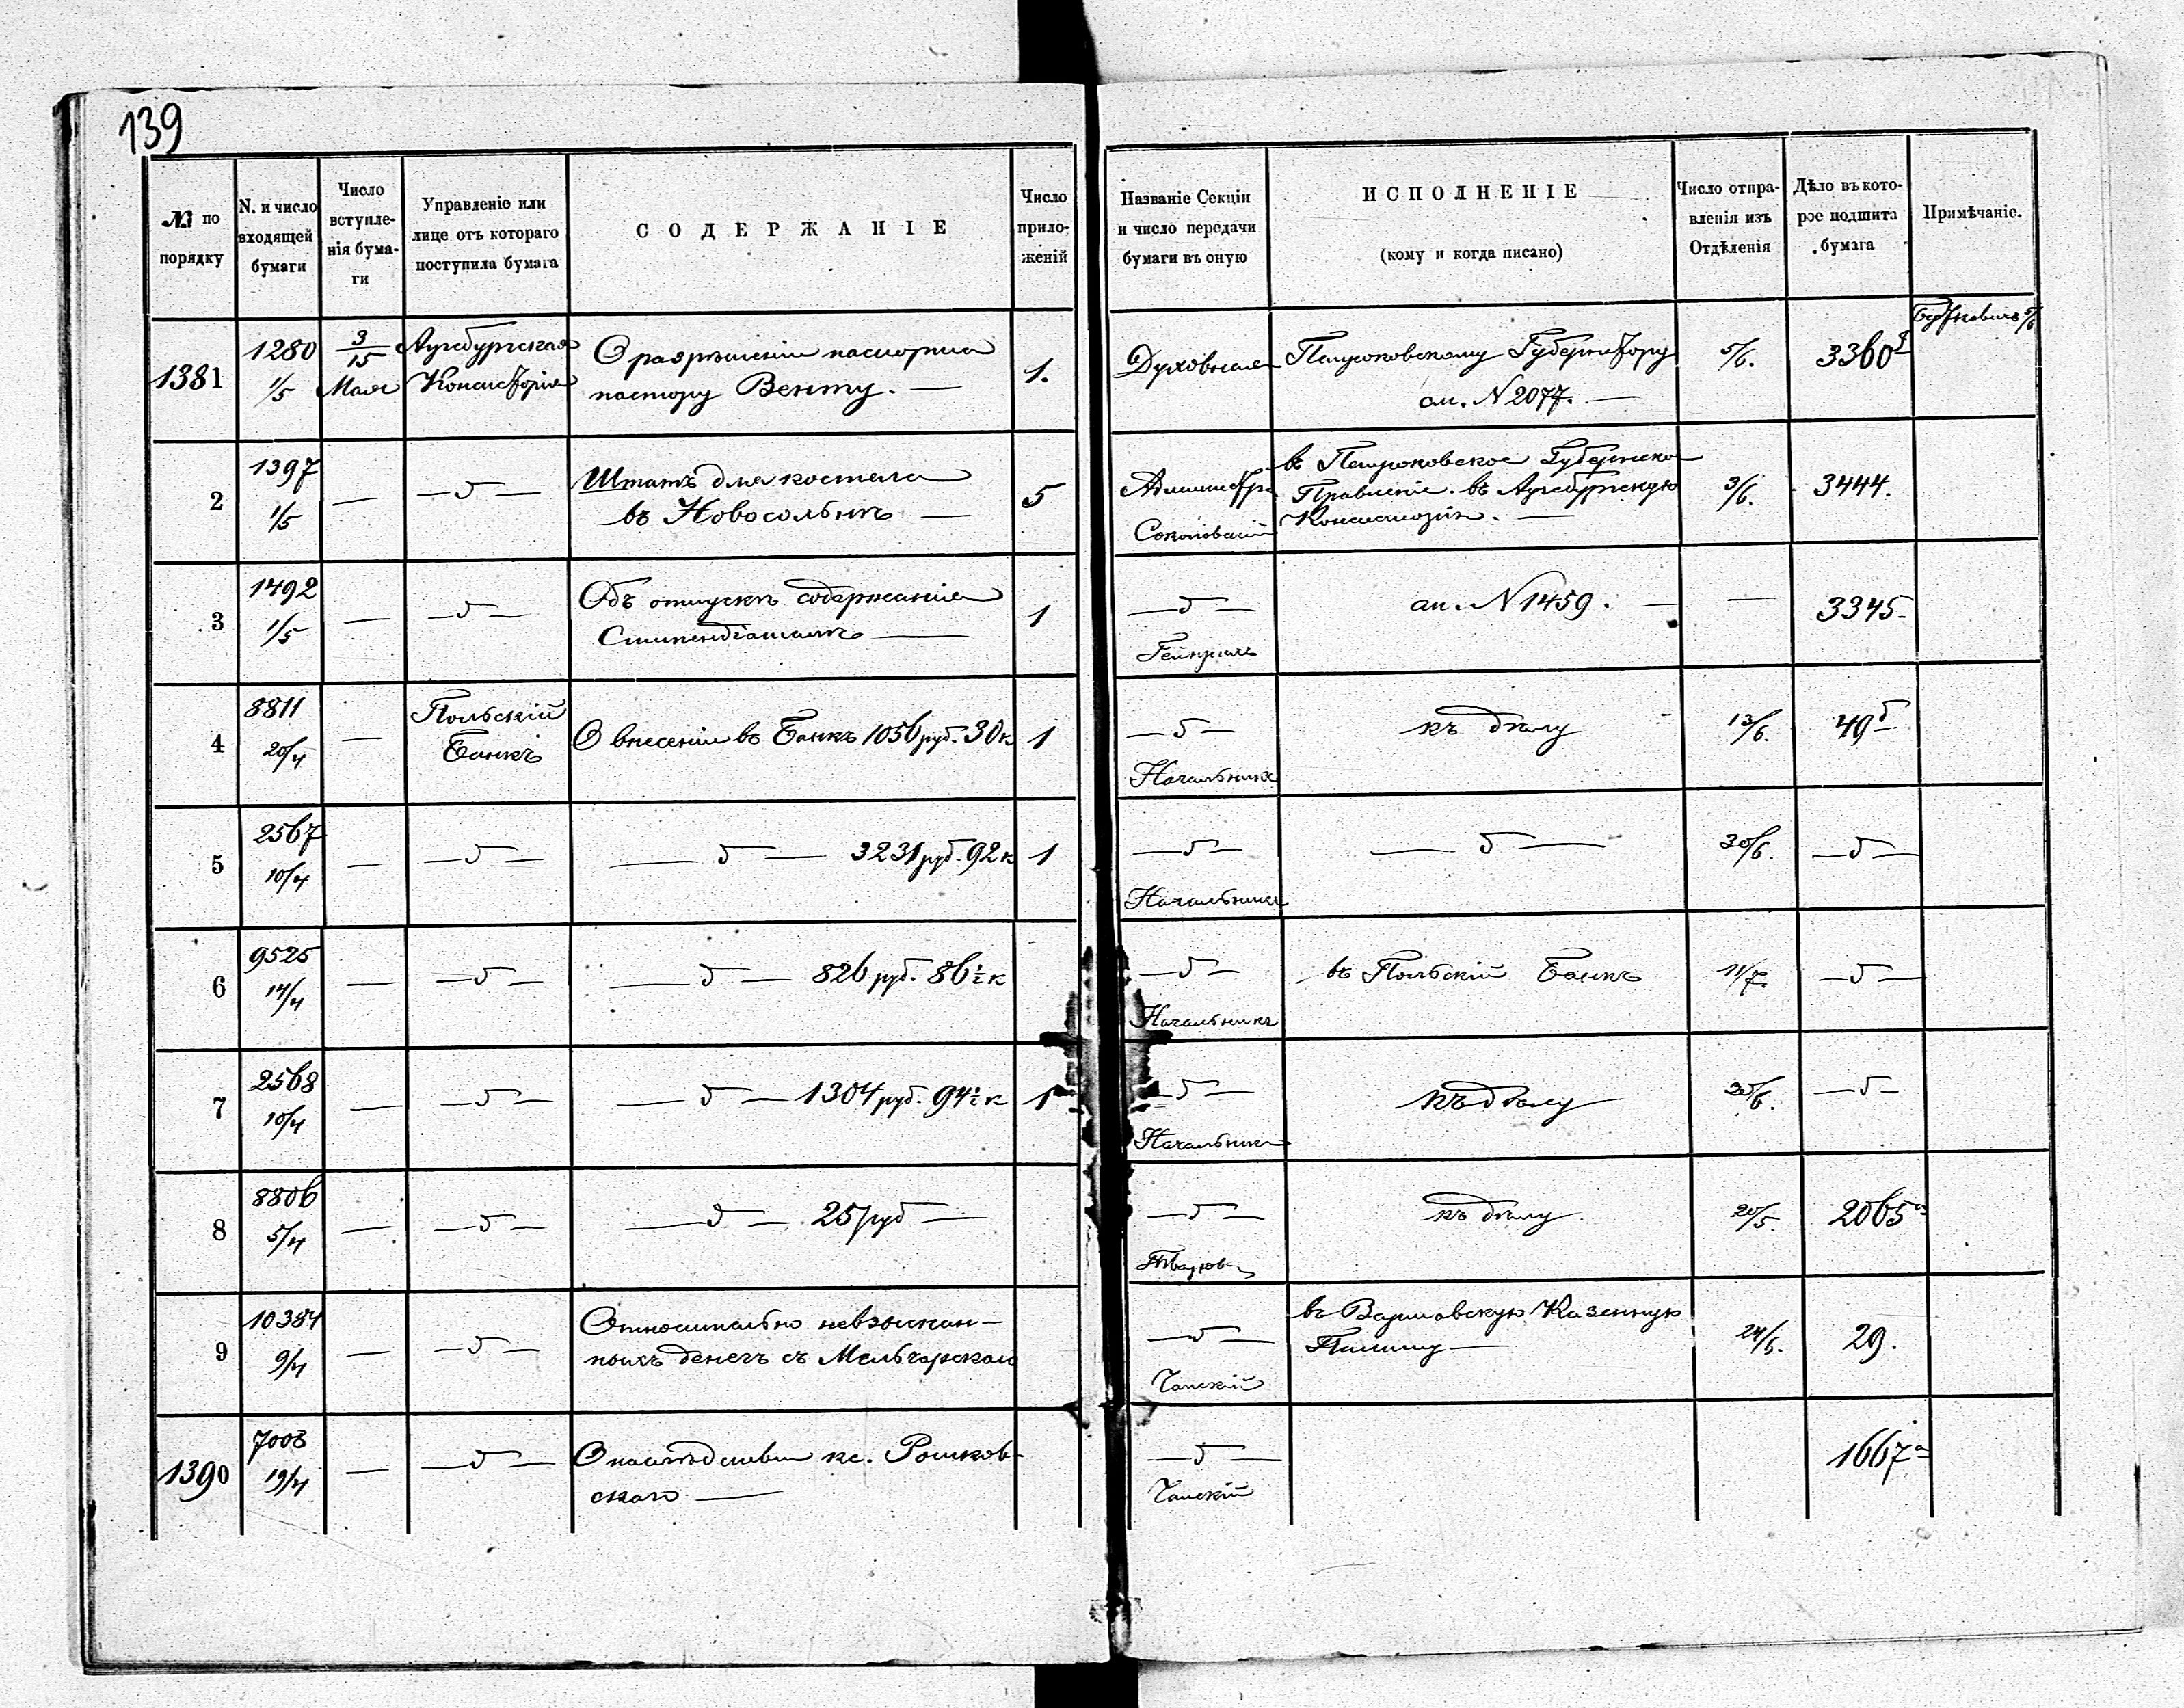 139
№ по порядку
N. и число входящей бумаги
Число вступленія бумаги
Управленіе или лице отъ котораго поступила бумага
СОДЕРЖАНІЕ
Число приложеній
Названіе Секціи и число передачи бумаги въ оную
ИСПОЛНЕНІЕ
(кому и когда писано)
Число отправленія изъ Отдѣленія
Дѣло въ которое подшита бумага
Примѣчаніе.
1381
1280
1/5
3/15
Мая
Аугсбургская
Консисторія
О разрѣшеніи паспорта
пастору Венту. —
1.
Духовная
Петроковскому Губернатору
см. N 2077. —
5/6.
3360
2
1397
1/5
—
— δ —
Штатъ для костела
въ Новосольнѣ —
5
Соколовскій
въ Петроковское Губернско
Правленіе. въ Аугсбургскую
Консисторію. —
3/6.
3444.
3
1492
1/5
—
— δ —
Объ отпускѣ содержанія
Стипендіатамъ —
1
— δ —
Гейнрихъ
см. N 1459. —
—
3345
4
8811
20/4
—
Польскій
Банкъ
О внесеніи въ Банкъ 1056 руб. 30 к
1
— δ —
Начальникъ
къ дѣлу
13/6.
49
5
2567
10/4
—
— δ —
— δ — 3231 руб. 92 к
1
— δ —
Начальникъ
— δ —
30/6.
— δ —
6
9525
14/4
—
— δ —
— δ — 826 руб. 86½ к
— δ —
Начальникъ
въ Польскій Банкъ
11/7.
— δ —
7
2568
10/4
—
— δ —
— δ — 1304 руб. 94½ к
1
— δ —
Начальникъ
къ дѣлу
— δ —
8
8806
5/4
—
— δ —
— δ — 25 руб —
— δ —
къ дѣлу.
20/5.
2065
9
10384
9/4
—
— δ —
Относительно невзыскан-
ныхъ денегъ съ Мельчарскаго
— δ —
Чапскій
въ Варшавскую Казенную
Палату —
24/6.
29.
1390
19/4
—
— δ —
О наслѣдствѣ кс. Рошков-
скаго —
— δ —
Чапскій
1667